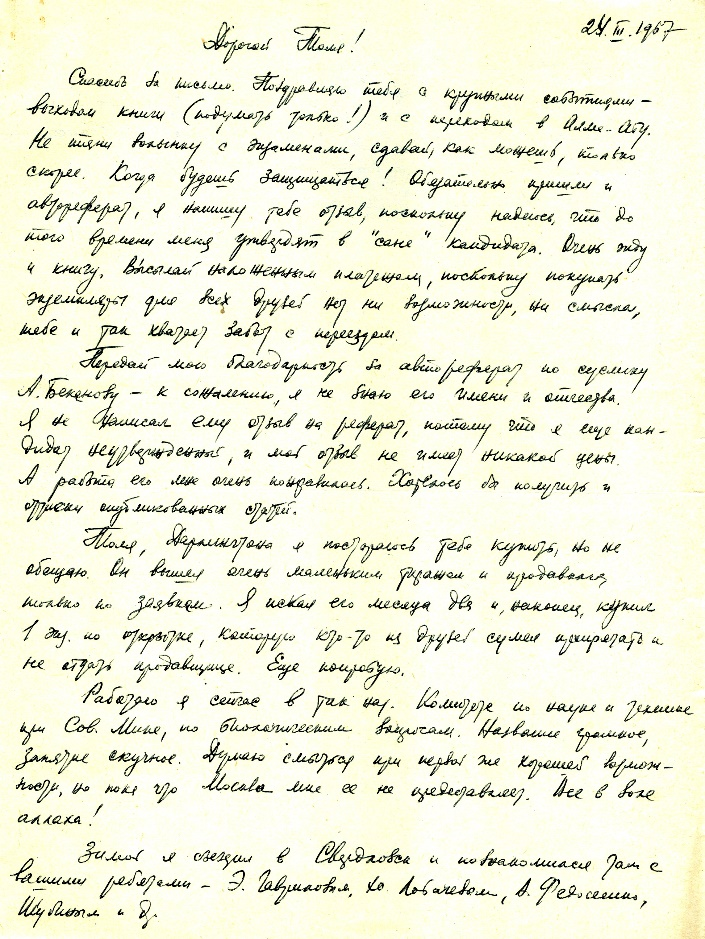 24.III.1967
Дорогой Толя!
Спасибо за письмо. Поздравляю тебя с крупными событиями –
выходом книги (подумать только!) и с переходом в Алма-Ату.
Не тяни волынку с экзаменами, сдавай, как можешь, только
скорее. Когда будешь защищаться! Обязательно пришли и
автореферат, я напишу тебе отзыв, поскольку надеюсь, что до
того времени меня утвердят в "сане" кандидата. Очень жду
и книгу. Высылай наложенным платежом, поскольку покупать
экземпляры для всех друзей нет ни возможности, ни смысла,
тебе и так хватает забот с переездом.
Передай мою благодарность за автореферат по суслику
А. Бекенову – к сожалению, я не знаю его имени и отчества.
Я не написал ему отзыв на реферат, потому что я еще кан-
дидат неутвержденный, и мой отзыв не имеет никакой цены.
А работа его мне очень понравилась. Хотелось бы получить и
оттиски опубликованных статей.
Толя, Дарлингтона я постараюсь тебе купить, но не
обещаю. Он вышел очень маленьким тиражом и продавался
только по заявкам. Я искал его месяца два и, наконец, купил
1 экз. по открытке, которую кто-то из друзей сумел припрятать и
не отдать продавщице. Еще попробую.
Работаю я сейчас в так наз. Комитете по науке и технике
при Сов. Мине, по биологическим вопросам. Название громкое,
занятие скучное. Думаю смыться при первой же хорошей возмож-
ности, но пока что Москва мне ее не представляет. Все в воле
аллаха!
Зимой я съездил в Свердловск и познакомился там с
вашими ребятами – Э. Гавриловым, Ю. Лобачевым, А. Федосенко,
Шубиным и др.